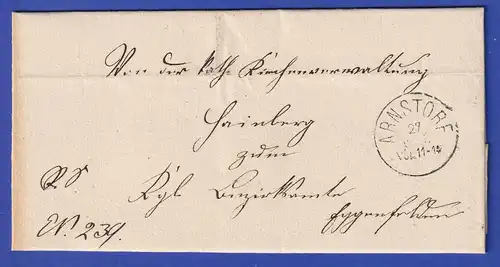 Von der Kath. Kirchenverwaltung
Hainberg
zum
Kgl Bezirksamte
Eggenfelden
R. S
No. 239.
ARNSTORF
27
11-12